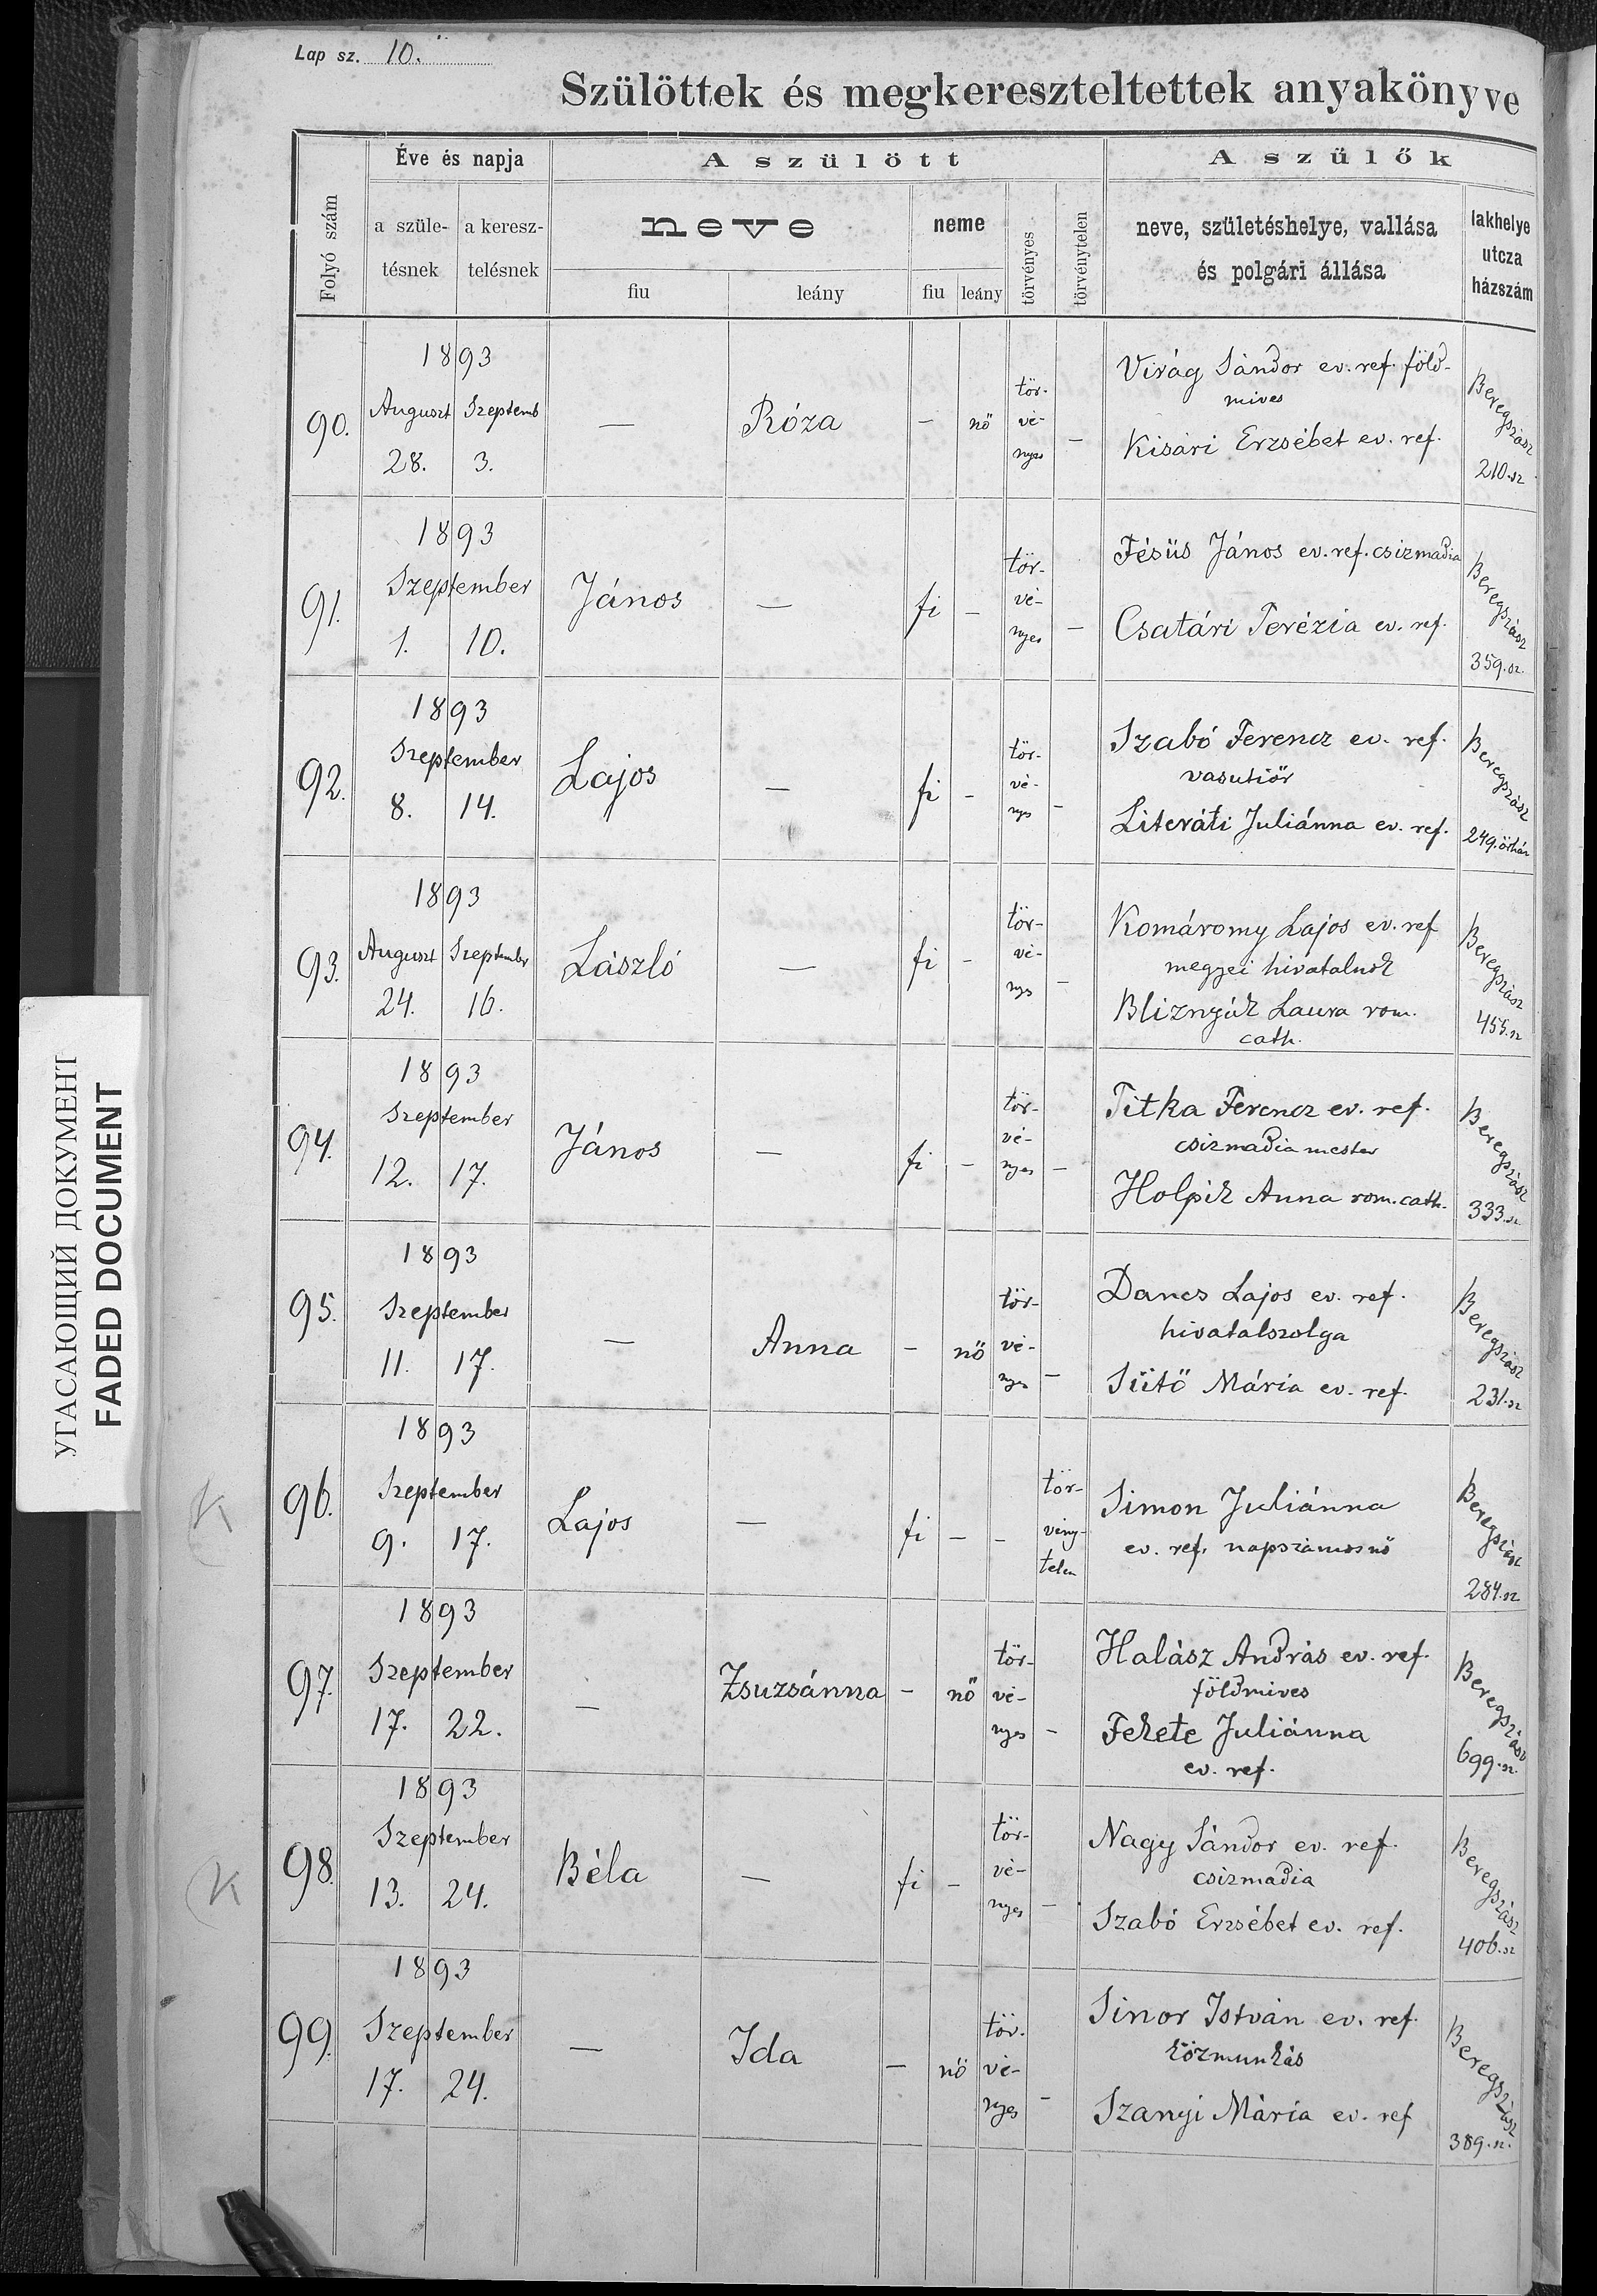 Lap sz. 10.
Szülöttek és megkereszteltettek anyakönyve
Folyó szám
Éve és napja
a szüle-
tésnek
a keresz-
telésnek
A szülött
neve
fiu
leány
neme
fiu
leány
törvényes
törvénytelen
A szülők
neve, születéshelye, vallása
és polgári állása
lakhelye
utcza
házszám
90.
1893
Auguszt
28.
Szeptemb
3.
—
Róza
—
nő
tör-
vé-
nyes
—
Virág Sándor ev. ref. föld-
mives
Kisári Erzsébet ev. ref.
Beregszász
210.sz
91.
1893
September
1.
10.
János
—
fi
—
tör-
vé-
nyes
—
Fésüs János ev. ref. csizmadia
Csatári Terézia ev. ref.
Beregszász
359.sz.
92.
1893
Szeptember
8.
14.
Lajos
—
fi
—
tör-
vé-
nyes
—
Szabó Ferencz ev. ref.
vasutiőr
Literáti Juliánna ev. ref.
Beregszász
249. őrház
93.
1893
Auguszt
24.
Szeptember
16.
László
—
fi
—
tör-
vé-
nyes
—
Komáromy Lajos ev. ref
megyei hivatalnok
Bliznyák Laura rom.
cath.
Beregszász
455.sz
94.
1893
Szeptember
12.
17.
János
—
fi
—
tör-
vé-
nyes
—
Titka Ferencz ev. ref.
csizmadia mester
Holpik Anna rom. cath.
Beregszász
333.sz.
95.
1893
Szeptember
11.
17.
—
Anna
—
nő
tör-
vé-
nyes
—
Dancs Lajos ev. ref.
hivatalszolga
Sütő Mária ev. ref.
Beregszász
231.sz
K
96.
1893
Szeptember
9.
17.
Lajos
—
fi
—
—
tör-
vény-
telen
Simon Juliánna
ev. ref. napszámosnő
Beregszász
284.sz
97.
1893
Szeptember
17.
22.
—
Zsuzsánna
—
nő
tör-
vé-
nyes
—
Halász András ev. ref.
földmives
Fekete Juliánna
ev. ref.
Beregszász
699.sz.
K
98.
1893
Szeptember
13.
24.
Béla
—
fi
—
tör-
vé-
nyes
—
Nagy Sándor ev. ref.
csizmadia
Szabó Erzsébet ev. ref.
Beregszász
406.sz
99.
1893
Szeptember
17.
24.
—
Ida
—
nő
tör-
vé-
nyes
—
Sinor István ev. ref.
közmunkás
Szanyi Mária ev. ref
Beregszász
389.sz.
УГАСАЮЩИЙ ДОКУМЕНТ
FADED DOCUMENT